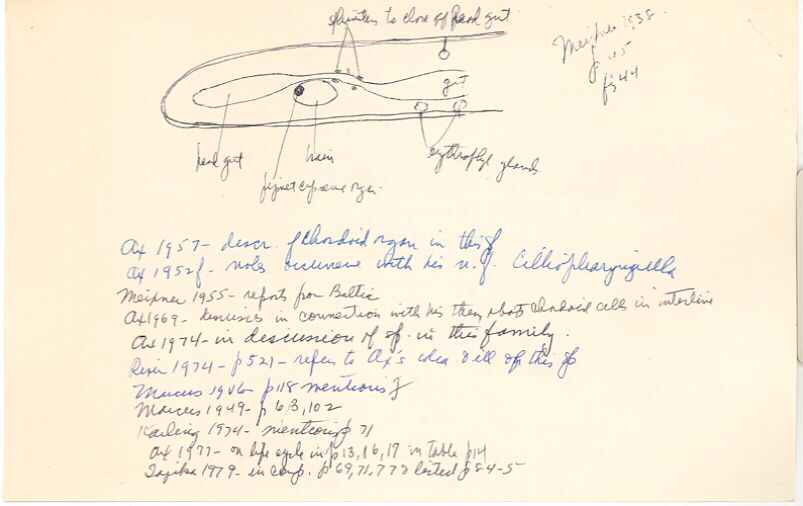 sphincters to close off head gut
Meixner 1938
p 45
fig 44
gut
head gut
brain
erythrophil glands
pigment cup sense organ
Ax 1957- descr. of Chordoid organ in this
Ax 1952f- notes occurrence with his n.g. Ciliopharyngiella
Meixner 1955- reports from Baltic
Ax 1969- discusses in connection with his theory about chordoid cells in interstitial
Ax 1974- in discussion of sp. in this family.
1974- p 521- refers to Ax's idea of this sp
Marcus 1946- p 118 mentions
Marcus 1949- p 63, 102
Karling 1974- mentions p 71
Ax 1977- on life cycle in p 13, 16, 17 in table p 14
Tajika 1979- in comp. p 69, 71, 77 listed p 84-5